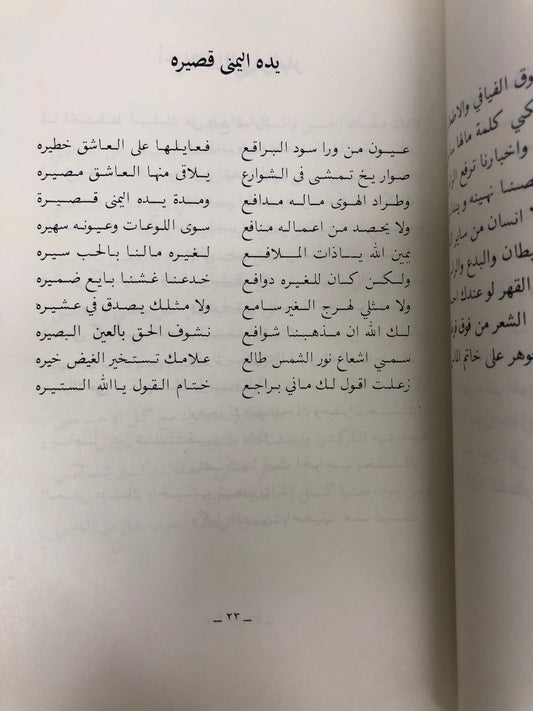 يده اليمنى قصيره
عيون من ورا سود البراقع فعايلها على العاشق خطيره
صواريخ تمشى في الشوارع يلاقى منها العاشق مصيره
وطراد الهوى ماله مدافع ومدة يده اليمنى قصيرة
ولا يحصد من اعماله منافع سوى اللوعات وعيونه سهيره
يمين الله ياذات الملافع لغيره مالنا بالحب سيره
ولكن كان للغيره دوافع خدعنا غشنا بايع ضميره
ولا مثلي لهرج الغير سامع ولا مثلك يصدق في عشيره
لك الله ان مذهبنا شوافع نشوف الحق بالعين البصيره
سمي اشعاع نور الشمس طالع علامك تستخير الغيض خيره
زعلت اقول لك ماني براجع ختام القول ياالله الستيره
ـ ٢٣ ـ
وق الفيافي والا
كلمة مالها
واخبارنا ترفع
نهينه و
انسان من ساير
يطان والبدع
القهر لو عندك
الشعر من فوق
وهر على خاتم